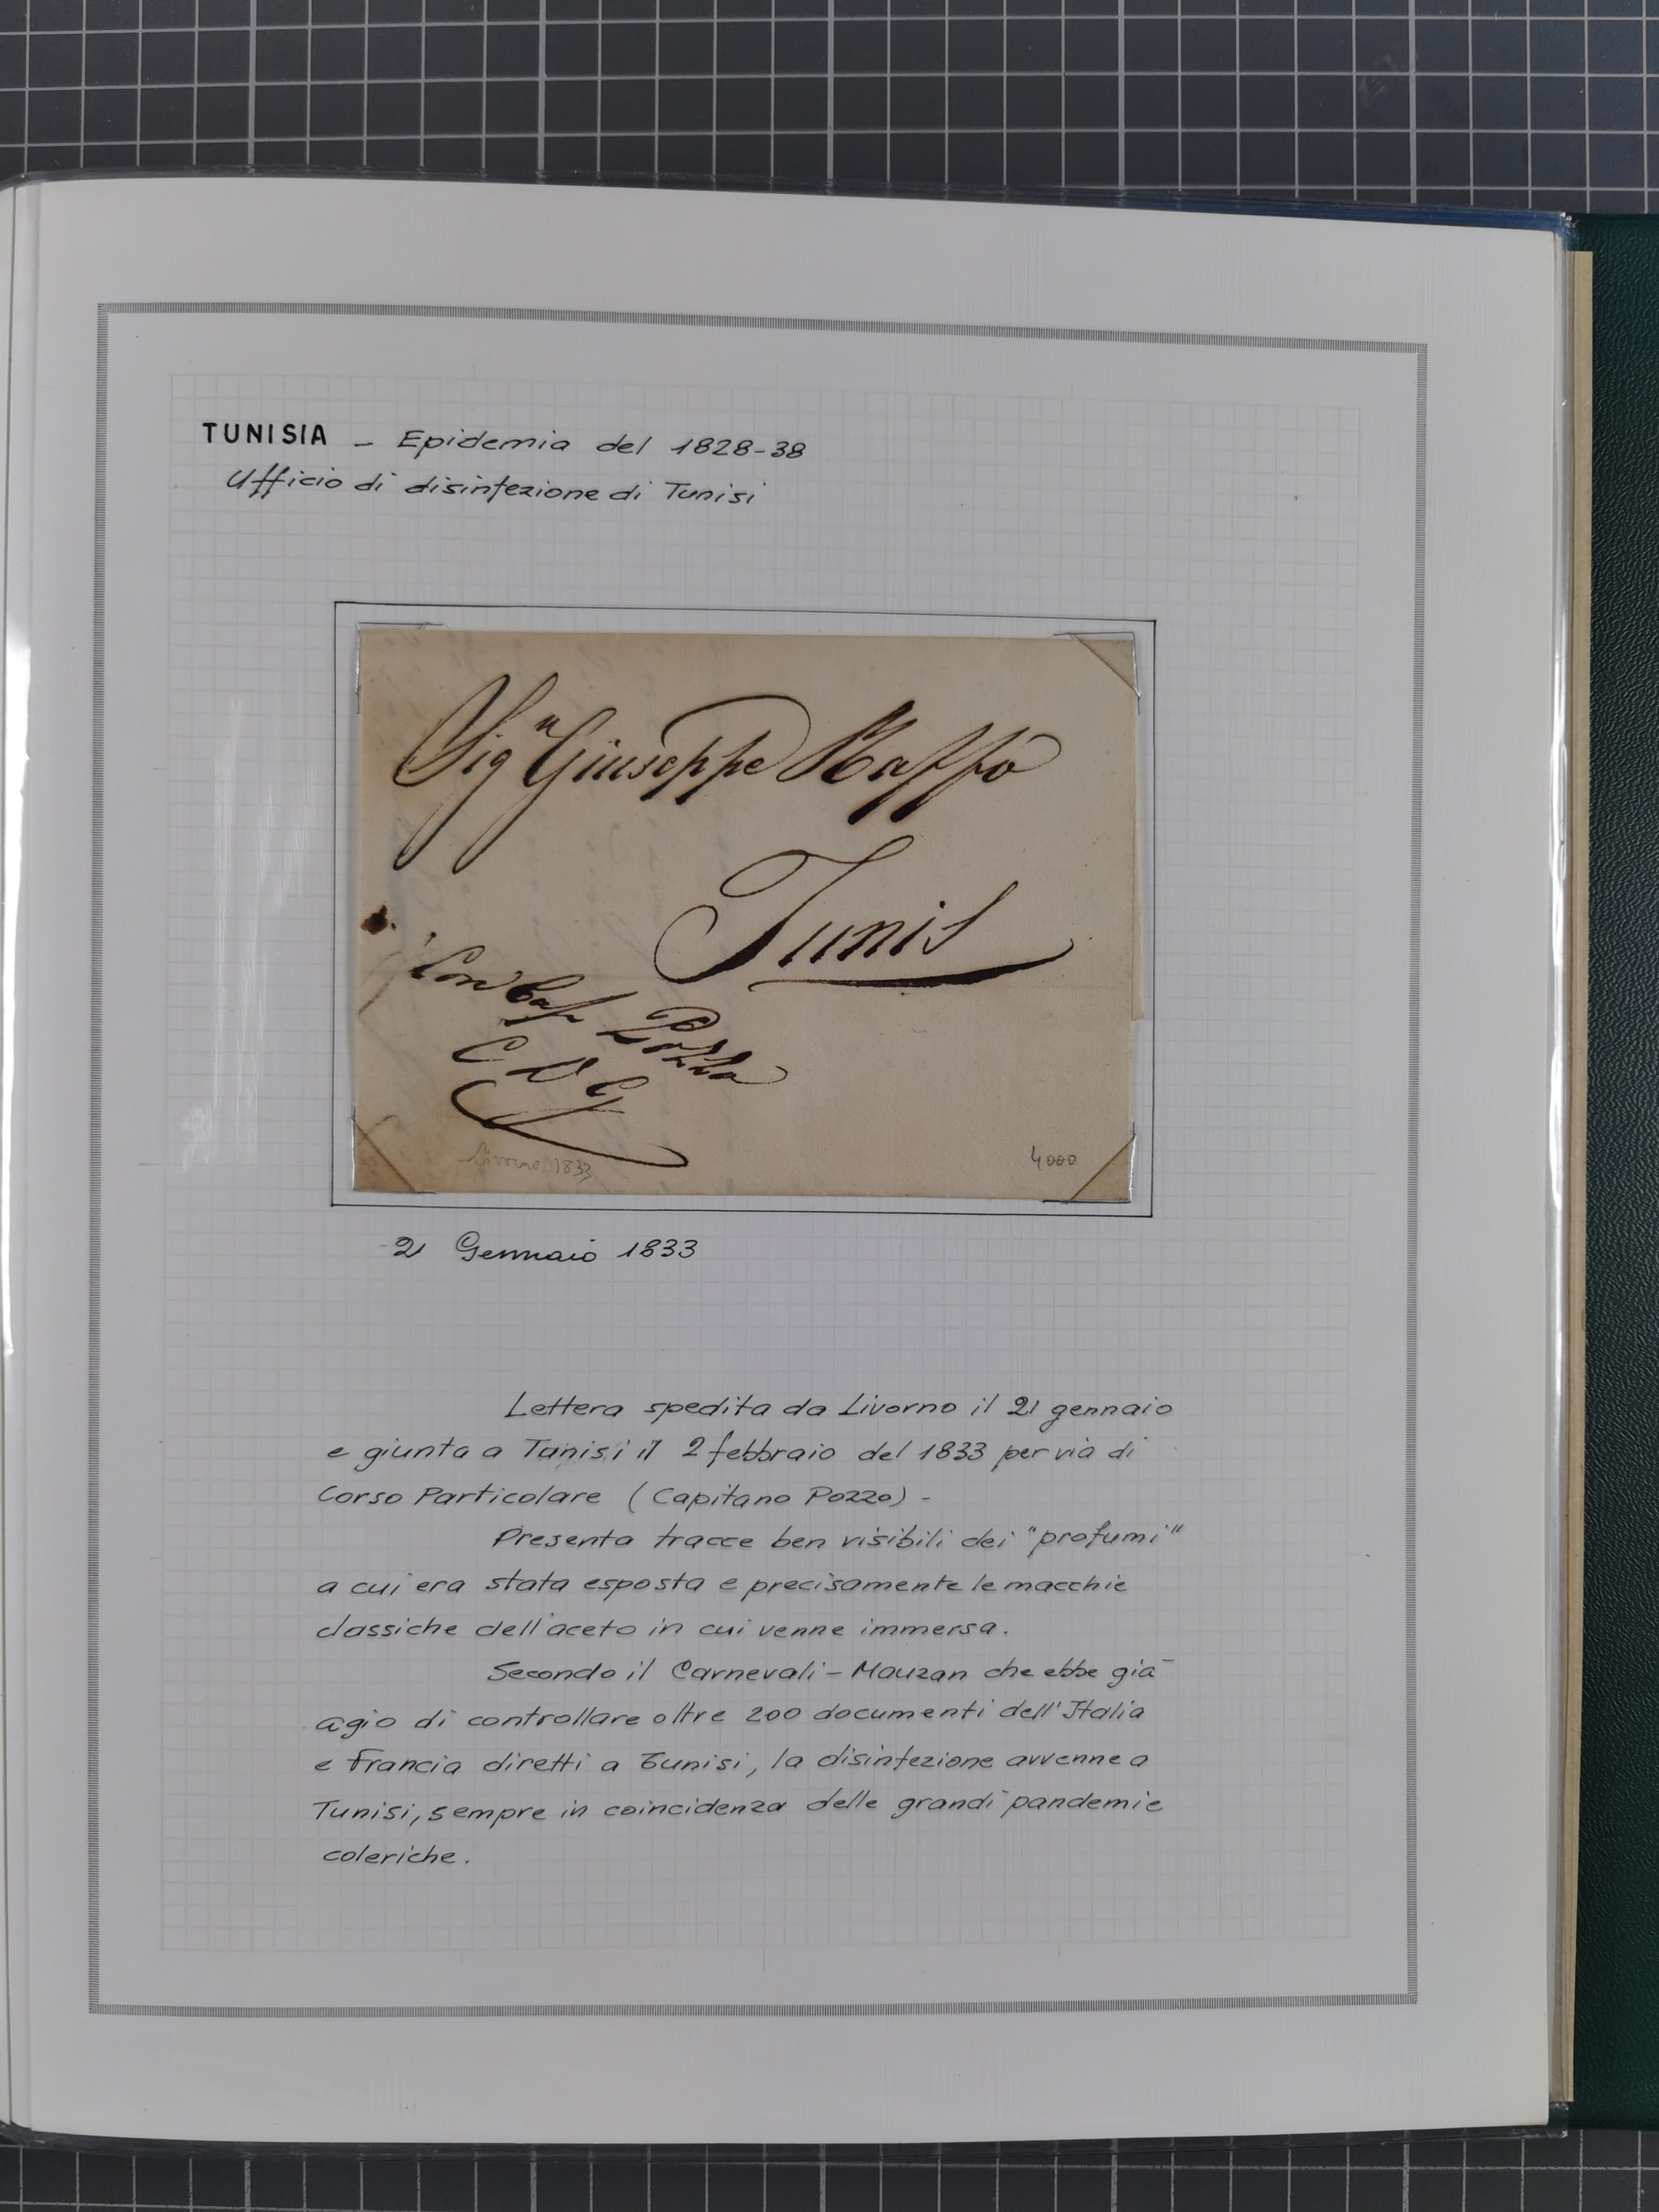 TUNISIA - Epidemia del 1828-38
Ufficio di disinfezione di Tunisi
Sig.r Giuseppe Raffo
Tunis
Con Cap Pozzo
C D G
Livorno 1833
4000
21 Gennaio 1833
Lettera spedita da Livorno il 21 gennaio
e giunta a Tunisi il 2 febbraio del 1833 per via di
Corso Particolare (Capitano Pozzo) -
Presenta tracce ben visibili dei "profumi"
a cui era stata esposta e precisamente le macchie
classiche dell'aceto in cui venne immersa.
Secondo il Carnevali-Mauzan che ebbe già
agio di controllare oltre 200 documenti dell'Italia
e Francia diretti a Tunisi, la disinfezione avvenne a
Tunisi, sempre in coincidenza delle grandi pandemie
coleriche.